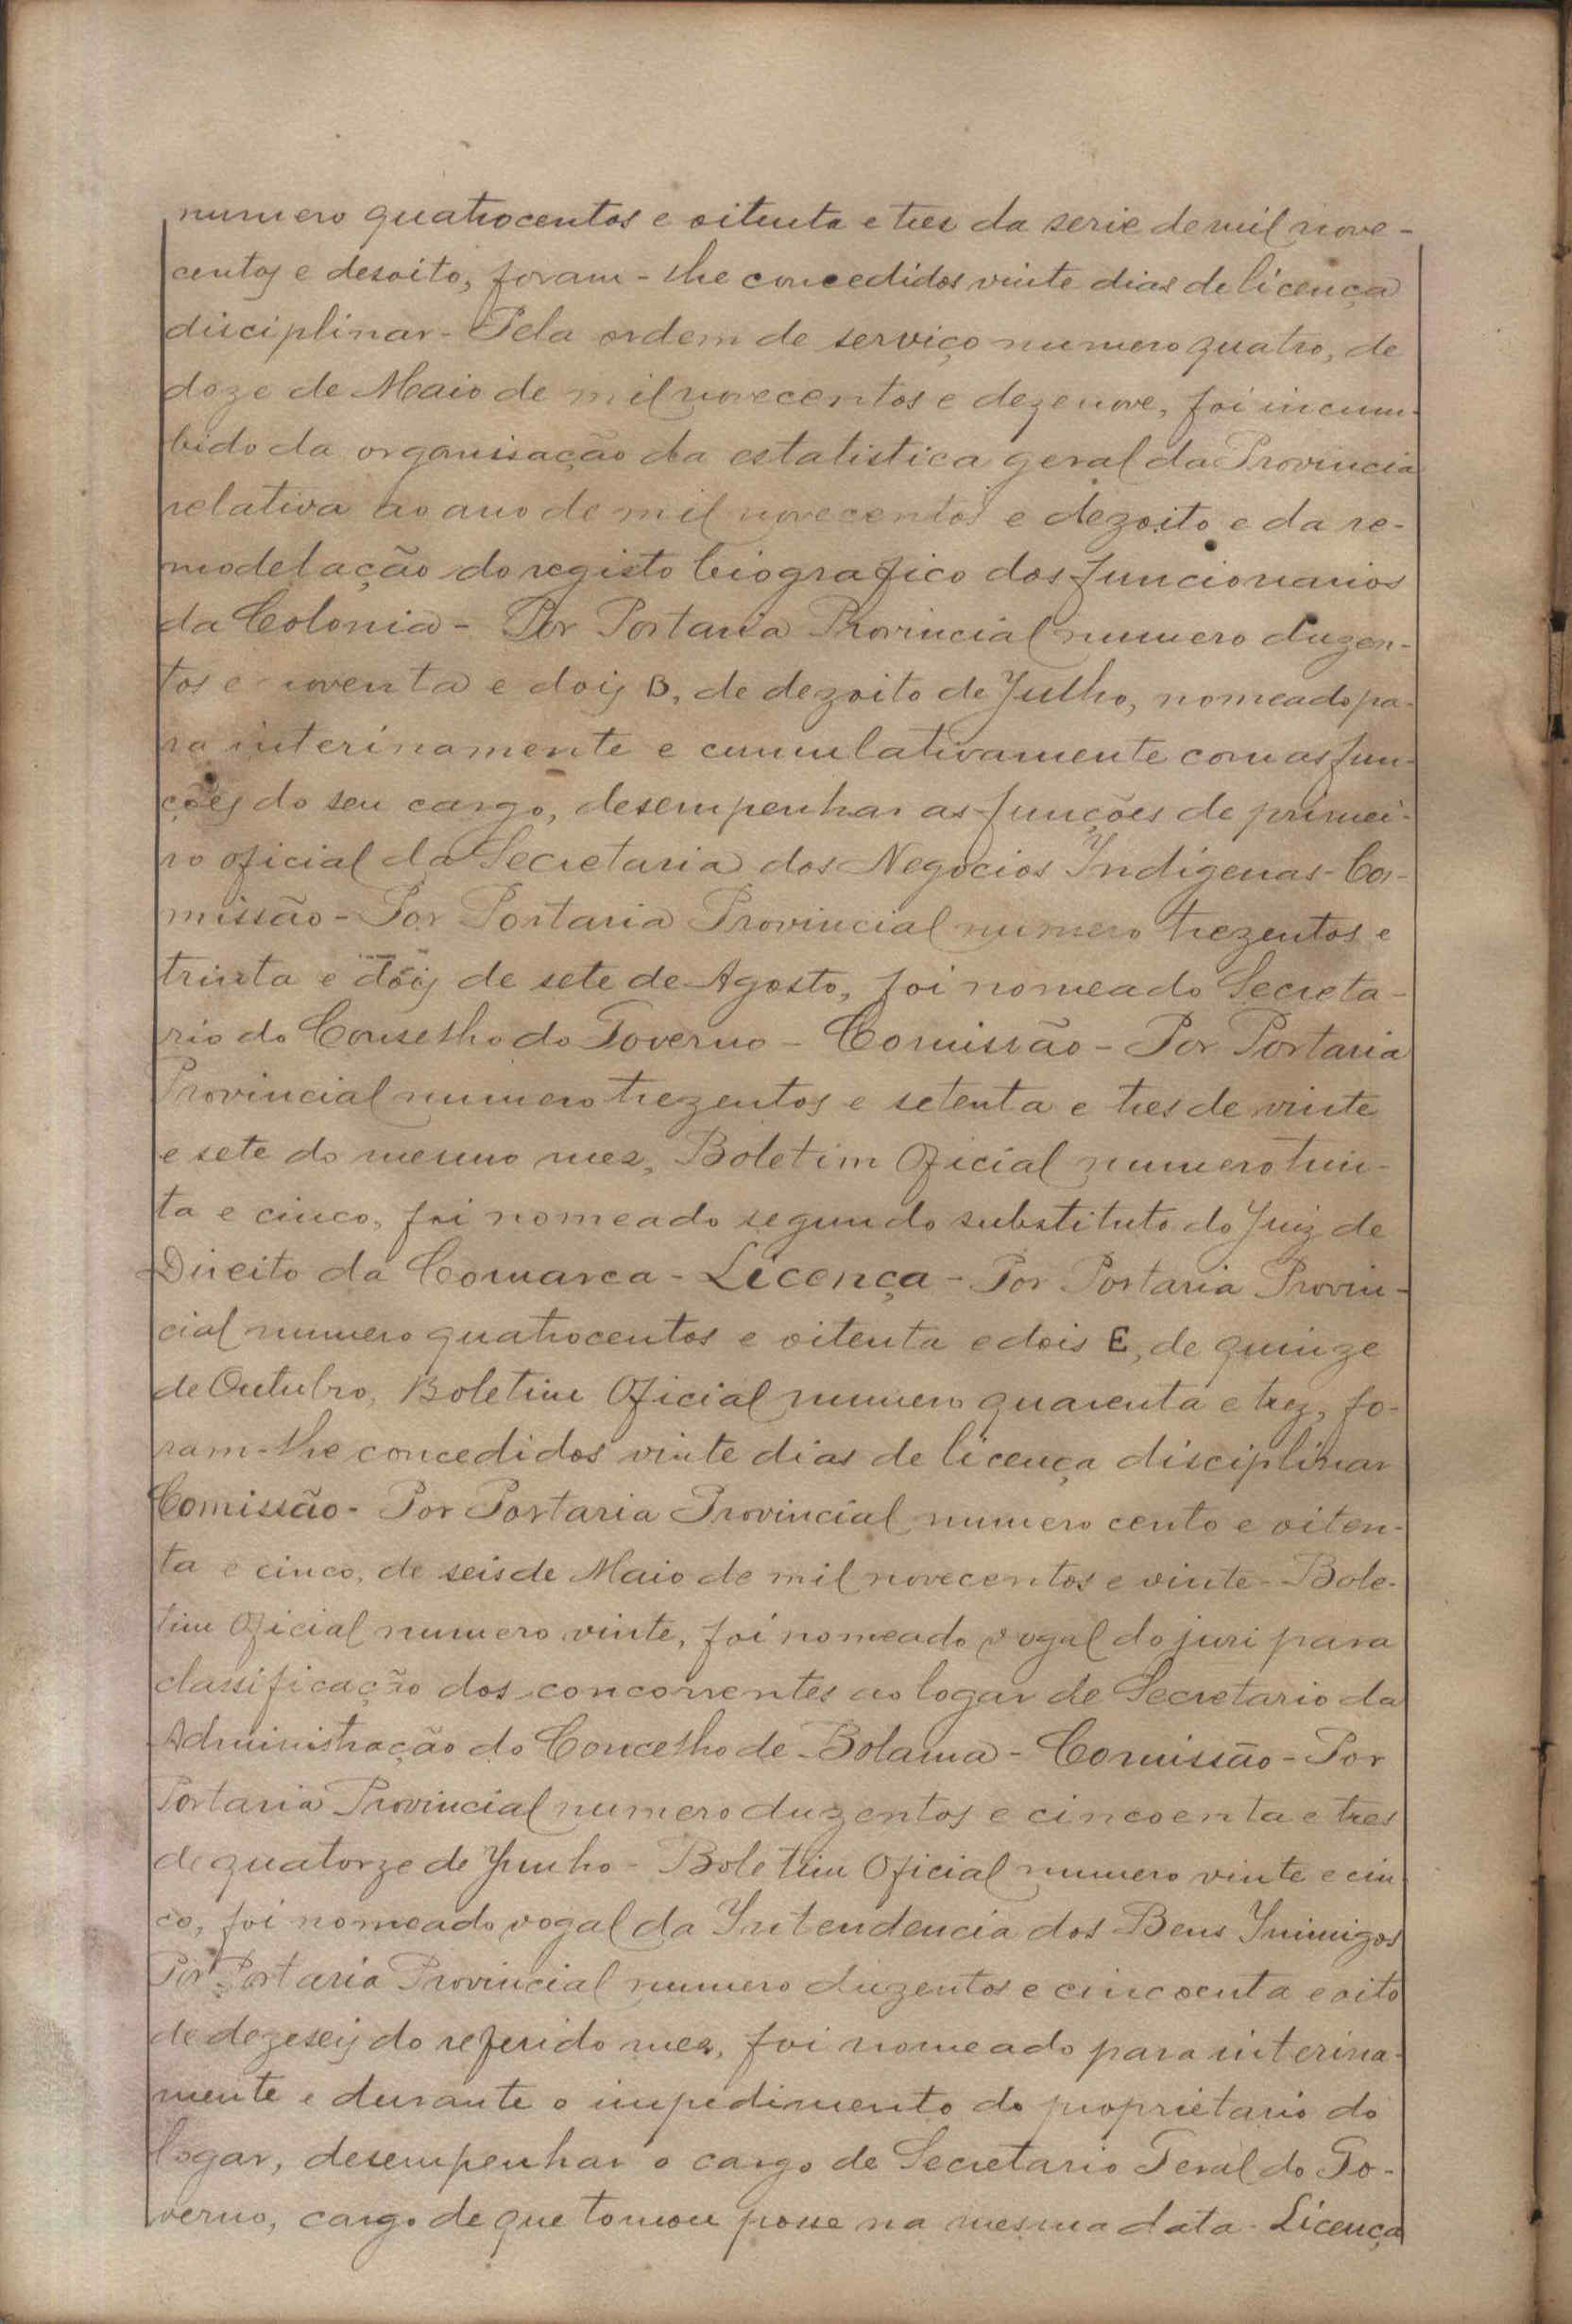 numero quatrocentos e oitenta e tres da serie de mil nove-
centos e desoito, foram-lhe concedidos vinte dias de licença
disciplinar - Pela ordem de serviço numero quatro, de
doze de Maio de mil novecentos e dezenove, foi incum-
bido da organisação da estatistica geral da Provincia
relativa ao ano de mil novecentos e dezoito e da re-
modelação do registo biografico dos funcionarios
da Colonia - Por Portaria Provincial numero duzen-
tos e noventa e dois B, de dezoito de Julho, nomeado pa-
ra interinamente e cumulativamente com as fun-
ções do seu cargo, desempenhar as funções de primei-
ro oficial da Secretaria dos Negocios Indigenas - Co-
missão - Por Portaria Provincial numero trezentos e
trinta e dois de sete de Agosto, foi nomeado Secreta-
rio do Conselho do Governo - Comissão - Por Portaria
Provincial numero trezentos e setenta e tres de vinte
e sete do mesmo mez, Boletim Oficial numero trin-
ta e cinco, foi nomeado segundo substituto do Juiz de
Direito da Comarca - Licença - Por Portaria Provin-
cial numero quatrocentos e oitenta e dois E, de quinze
de Outubro, Boletim Oficial numero quarenta e trez, fo-
ram-lhe concedidos vinte dias de licença disciplinar
Comissão - Por Portaria Provincial numero cento e oiten-
ta e cinco, de seis de Maio de mil novecentos e vinte - Bole-
tim Oficial numero vinte, foi nomeado vogal do juri para
classificação dos concorrentes ao logar de Secretario da
Administração do Concelho de Bolama - Comissão - Por
Portaria Provincial numero duzentos e cincoenta e tres
de quatorze de Junho - Boletim Oficial numero vinte e cin-
co, foi nomeado vogal da Intendencia dos Bens Inimigos
Por Portaria Provincial numero duzentos e cincoenta e oito
de dezeseis do referido mez, foi nomeado para interina-
mente e durante o impedimento do proprietario do
logar, desempenhar o cargo de Secretario Geral do Go-
verno, cargo de que tomou posse na mesma data - Licença